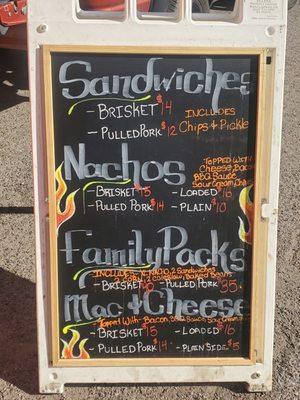 Sandwiches
- Brisket $14 Includes
- Pulled Pork $12 Chips & Pickle
Nachos
Topped With
Cheese, Bacon
BBQ Sauce
Sour Cream
- Brisket $15 - Loaded $16
- Pulled Pork $14 - Plain $10
Family Packs
Includes 2 Sandwiches
Baked Beans
- Brisket - Pulled Pork $35
Mac & Cheese
Topped With - Bacon, BBQ Sauce, Sour Cream
- Brisket $15 - Loaded $16
- Pulled Pork $14 - Plain Side $5